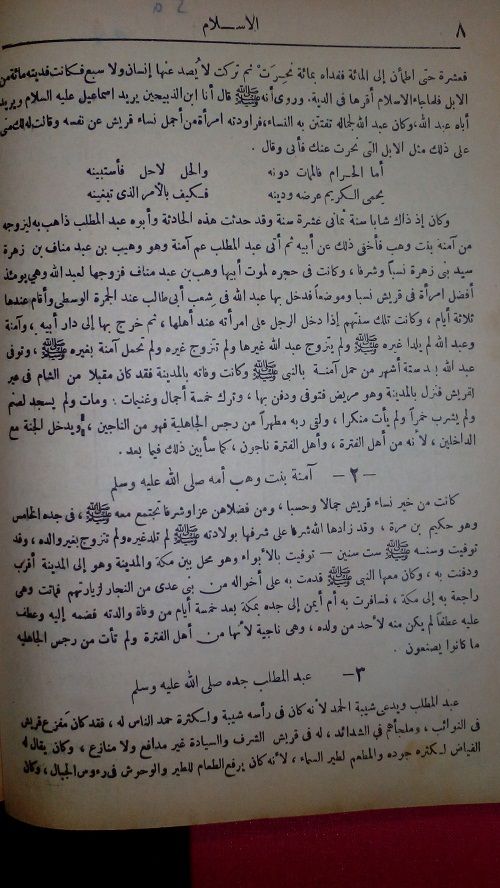 ٨
الاســلام
فعشرة حتى اطمأن إلى المائة ففداه بمائة نُحِرَتْ ثم تركت لا يُصد عنها إنسان ولا سبع فكانت فديته مائة من
الابل فلما جاء الاسلام أقرها فى الدية. وروى أنه ﷺ قال أنا ابن الذبيحين يريد اسماعيل عليه السلام ويريد
أباه عبد الله، وكان عبد الله لجماله تفتتن به النساء، فراودته امرأة من أجمل نساء قريش عن نفسه وكانت له
على ذلك مثل الابل التى نحرت عنك فأبى وقال .
أما الحرام فالممات دونه والحل لاحل فأستبينه
يحمى الكريم عرضه ودينه فكيف بالأمر الذى تبغينه
وكان إذ ذاك شابا سنة ثمانى عشرة سنة وقد حدثت هذه الحادثة وأبوه عبد المطلب ذاهب به ليزوجه
من آمنة بنت وهب فأخفى ذلك عن أبيه ثم أتى عبد المطلب عم آمنة وهو وهيب بن عبد مناف بن زهرة
سيد بنى زهرة نسباً وشرفا ، وكانت فى حجره لموت أبيها وهب بن عبد مناف فزوجها لعبد الله وهى يومئذ
أفضل امرأة فى قريش نسبا وموضعاً فدخل بها عبد الله فى شعب أبى طالب عند الجمرة الوسطى وأقام عندها
ثلاثة أيام ، وكانت تلك سنتهم إذا دخل الرجل على امرأته عند أهلها ، ثم خرج بها إلى دار أبيه ، وآمنة
وعبد الله لم يلدا غيره ﷺ ولم يتزوج عبد الله غيرها ولم تتزوج غيره ولم تحمل آمنة بغيره ﷺ ، وتوفى
عبد الله بعد ستة أشهر من حمل آمنة بالنبى ﷺ وكانت وفاته بالمدينة فقد كان مقبلا من الشام فى عير
لقريش فنزل بالمدينة وهو مريض فتوفى ودفن بها ، وترك خمسة أجمال وغنيمات : ومات ولم يسجد لصنم
ولم يشرب خمراً ولم يأت منكرا ، ولقى ربه مطهراً من رجس الجاهلية فهو من الناجين ، ويدخل الجنة مع
الداخلين ، لأنه من أهل الفترة ، وأهل الفترة ناجون ، كما سأبين ذلك فيما بعد .
—٢— آمنة بنت وهب أمه صلى الله عليه وسلم
كانت من خير نساء قريش جمالا وحسبا ، ومن فضلاهن عزا وشرفا تجتمع معه ﷺ ، فى جده الخامس
وهو حكيم بن مرة ، وقد زادها الله شرفا على شرفها بولادته ﷺ لم تلد غيره ولم تتزوج بغير والده ، وقد
توفيت وسنه ﷺ ست سنين — توفيت بالأبواء وهو محل بين مكة والمدينة وهو إلى المدينة أقرب
ودفنت به ، وكان معها النبى ﷺ قدمت به على أخواله من بنى عدى من النجار لزيارتهم فماتت وهى
راجعة به إلى مكة ، فسافرت به أم أيمن إلى جده بمكة بعد خمسة أيام من وفاة والدته فضمه إليه وعطف
عليه عطفا لم يكن منه لأحد من ولده ، وهى ناجية لأنها من أهل الفترة ولم تأت من رجس الجاهلية
ما كانوا يصنعون .
—٣— عبد المطلب جده صلى الله عليه وسلم
عبد المطلب ويدعى شيبة الحمد لأنه كان فى رأسه شيبة ولكثرة حمد الناس له ، فقد كان مَفزع قريش
فى النوائب ، وملجأهم فى الشدائد ، له فى قريش الشرف والسيادة غير مدافع ولا منازع ، وكان يقال له
الفياض لكثرة جوده والمطعم لطير السماء ، لأنه كان يرفع الطعام للطير والوحوش فى رءوس الجبال ، وكان